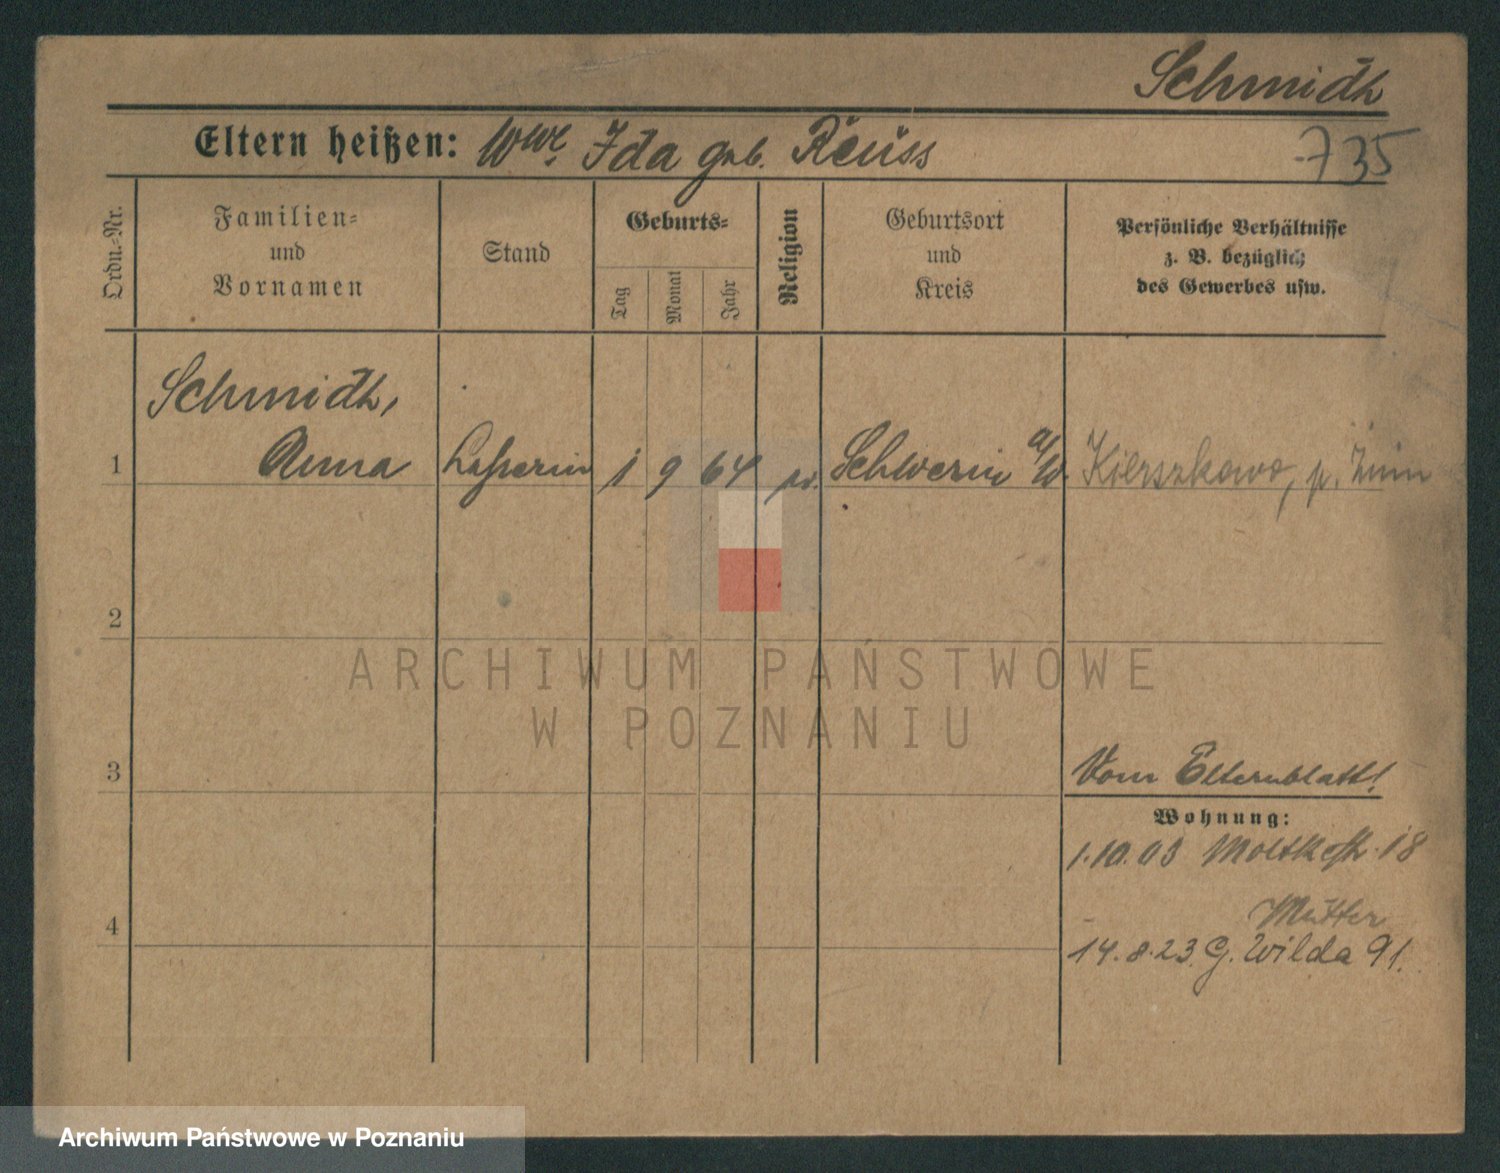 Schmidt
Eltern heißen: Wwe. Ida geb. Reuss
735
Ordn.=Nr.
Familien=
und
Vornamen
Stand
Geburts=
Tag
Monat
Jahr
Religion
Geburtsort
und
Kreis
Persönliche Verhältnisse
z. B. bezüglich
des Gewerbes usw.
Schmidt,
1 Anna Lehrerin 1 9 64 ev. Schwerin a/W. p. Znin
2
ARCHIWUM PAŃSTWOWE
W POZNANIU
3
Vom Elternblatt!
Wohnung:
1.10.03 Moltkestr. 18
4
Mutter
14.8.23 G. Wilda 91.
Archiwum Państwowe w Poznaniu